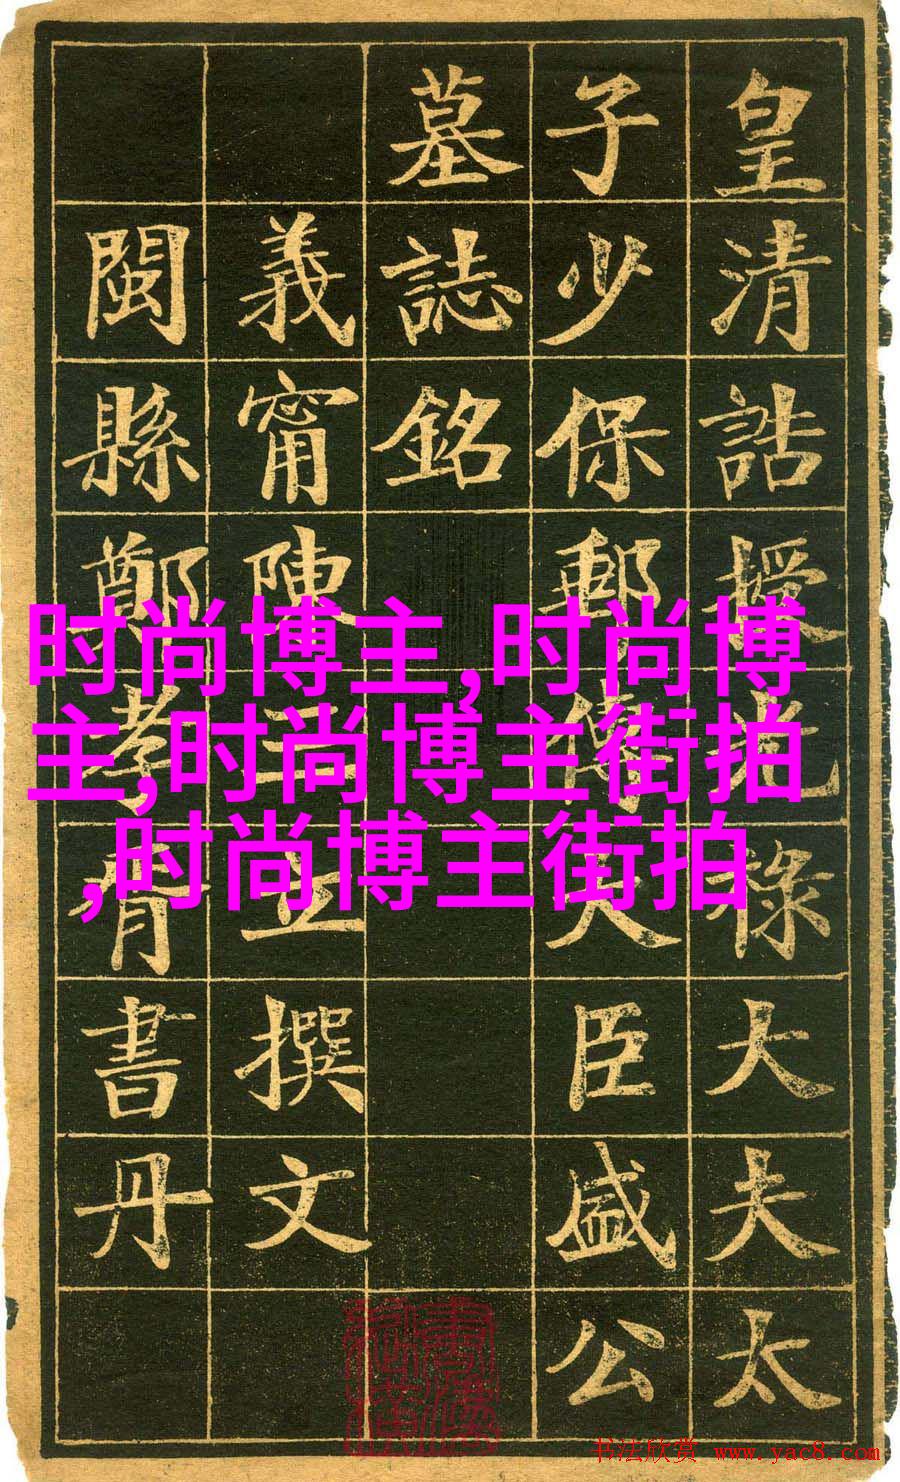 皇清誥授光祿大夫太
子少保郵傳大臣盛公
墓誌銘
義甯陳三立撰文
閩縣鄭孝胥書丹
时尚博主,时尚博
主,时尚博主街拍
,时尚博主街拍
书法欣赏 www.yac8.com